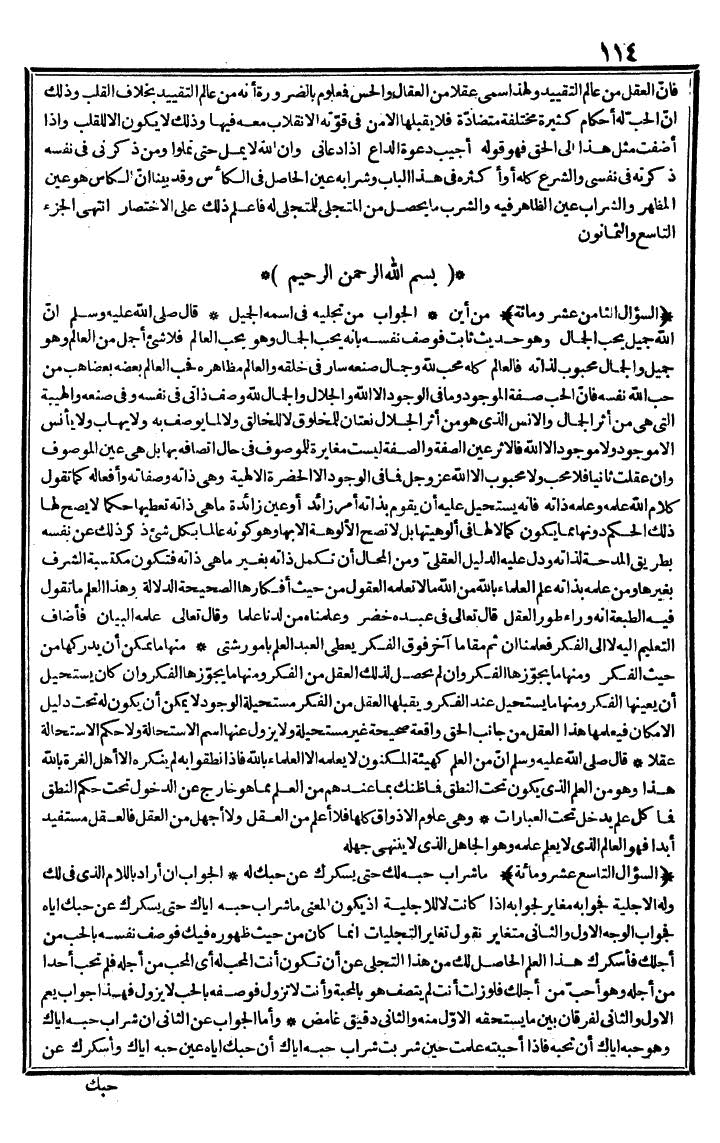 ١١٤
فانّ العقل من عالم التقييد ولهذا سمى عقلا من العقال والحس فمعلوم بالضرورة أنه من عالم التقييد بخلاف القلب وذلك
انّ الحبّ له أحكام كثيرة مختلفة متضادّة فلا يقبلها الامن فى قوّته الانقلاب معه فيها وذلك لا يكون الا للقلب واذا
أضفت مثل هذا الى الحق فهو قوله أجيب دعوة الداع اذا دعانى وان الله لا يمل حتى تملوا ومن ذكرنى فى نفسه
ذكرته فى نفسى والشرع كله أو أكثره فى هذا الباب وشرابه عين الحاصل فى الكأس وقد بينا انّ الكاس هو عين
المظهر والشراب عين الظاهر فيه والشرب ما يحصل من المتجلى للمتجلى له فاعلم ذلك على الاختصار انتهى الجزء
التاسع والثمانون
*( بسم الله الرحمن الرحيم )*
﴿السؤال الثامن عشر ومائة﴾ من أين * الجواب من تجليه فى اسمه الجميل * قال صلى الله عليه وسلم انّ
الله جميل يحب الجمال وهو حديث ثابت فوصف نفسه بانه يحب الجمال وهو يحب العالم فلا شئ أجمل من العالم وهو
جميل والجمال محبوب لذاته فالعالم كله محب لله وجمال صنعه سار فى خلقه والعالم مظاهره فحب العالم بعضه بعضا هب من
حب الله نفسه فانّ الحب صفة الموجود وما فى الوجود الا الله والجلال والجمال لله وصف ذاتى فى نفسه وفى صنعه والهيبة
التى هى من أثر الجمال والانس الذى هو من أثر الجلال نعتان للمخلوق لا للخالق ولا لما يوصف به ولا يهاب ولا يأنس
الا موجود ولا موجود الا الله فالاثر عين الصفة والصفة ليست مغايرة للموصوف فى حال اتصافه بها بل هى عين الموصوف
وان عقلت ثانيا فلا محب ولا محبوب الا الله عز وجل فما فى الوجود الا الحضرة الالهية وهى ذاته وصفاته وأفعاله كما تقول
كلام الله علمه وعلمه ذاته فانه يستحيل عليه أن يقوم بذاته أمر زائد أو عين زائدة ما هى ذاته تعطيها حكما لا يصح لها
ذلك الحكم دونها مما يكون كمالا لها فى ألوهيتها بل لا تصح الألوهة الا بها وهو كونه عالما بكل شئ ذكر ذلك عن نفسه
بطريق المدحة لذاته ودل عليه الدليل العقلىّ ومن المحال أن تكمل ذاته بغير ما هى ذاته فتكون مكتسبة الشرف
بغيرها ومن علمه بذاته علم العلماء بالله من الله ما لا تعلمه العقول من حيث أفكارها الصحيحة الدلالة وهذا العلم ما تقول
فيه الطبعة انه وراء طور العقل قال تعالى فى عبده خضر وعلمناه من لدنا علما وقال تعالى علمه البيان فأضاف
التعليم اليه لا الى الفكر فعلمنا ان ثم مقاما آخر فوق الفكر يعطى العبد العلم بامور شتى * منها ما يمكن أن يدركها من
حيث الفكر ومنها ما يجوّزها الفكر وان لم يحصل لذلك العقل من الفكر ومنها ما يجوّزها الفكر وان كان يستحيل
أن يعينها الفكر ومنها ما يستحيل عند الفكر ويقبلها العقل من الفكر مستحيلة الوجود لا يمكن أن يكون له تحت دليل
الامكان فيعلمها هذا العقل من جانب الحق واقعة صحيحة غير مستحيلة ولا يزول عنها اسم الاستحالة ولا حكم الاستحالة
عقلا * قال صلى الله عليه وسلم انّ من العلم كهيئة المكنون لا يعلمه الا العلماء بالله فاذا نطقوا به لم ينكره الا أهل الغرة بالله
هذا وهو من العلم الذى يكون تحت النطق فما ظنك بما عندهم من العلم مما هو خارج عن الدخول تحت حكم النطق
فما كل علم يدخل تحت العبارات * وهى علوم الاذواق كلها فلا أعلم من العقل ولا أجهل من العقل فالعقل مستفيد
أبدا فهو العالم الذى لا يعلم علمه وهو الجاهل الذى لا ينتهى جهله
﴿السؤال التاسع عشر ومائة﴾ ما شراب حبه لك حتى يسكرك عن حبك له * الجواب ان أراد باللام الذى فى لك
وله الاجلية فجوابه مغاير لجوابه اذا كانت لا للاجلية اذ يكون المعنى ما شراب حبه اياك حتى يسكرك عن حبك اياه
فجواب الوجه الاول والثانى متغاير نقول تغاير التجليات انما كان من حيث ظهوره فيك فوصف نفسه بالحب من
أجلك فأسكرك هذا العلم الحاصل لك من هذا التجلى عن أن تكون أنت المحب له أى المحب من أجله فلم تحب أحدا
من أجله وهو أحبّ من أجلك فلو زلت أنت لم يتصف هو بالمحبة وأنت لا تزول فوصفه بالحب لا يزول فهذا جواب يعم
الاول والثانى لفرقان بين ما يستحقه الاوّل منه والثانى دقيق غامض * وأما الجواب عن الثانى ان شراب حبه اياك
وهو حبه اياك أن تحبه فاذا أحببته علمت حين شربت شراب حبه اياك أن حبك اياه عين حبه اياك وأسكرك عن
حبك